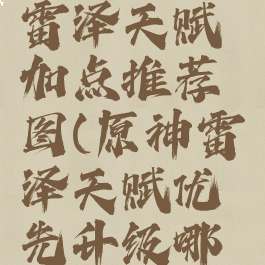 雷泽天赋
加点推荐
图(原神雷
泽天赋优
先升级哪